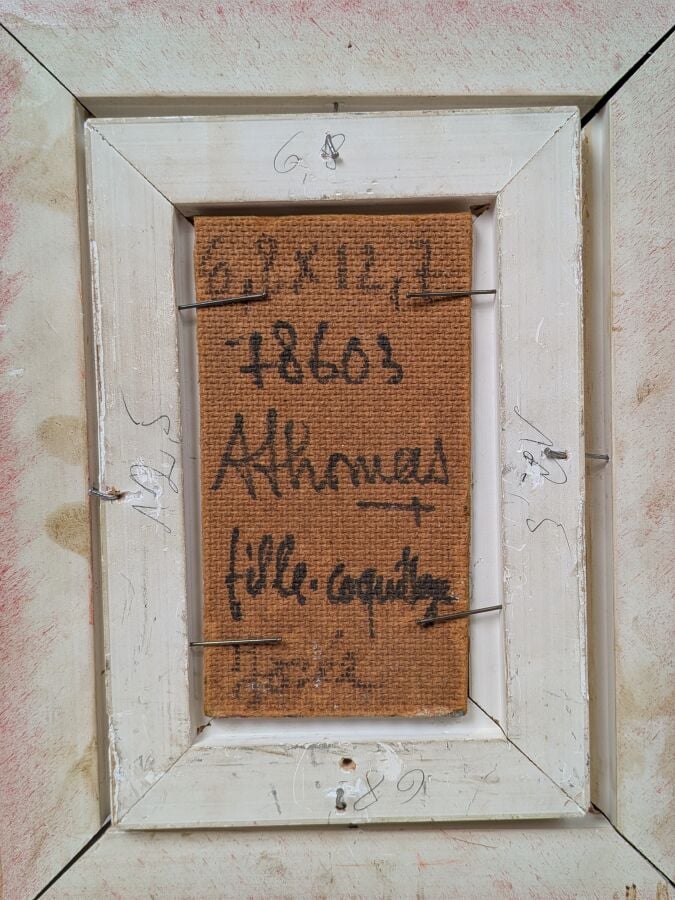 6,8
6,8 x 12,7
78603
Athomas
fille. coquillage
12,5
12,5
89